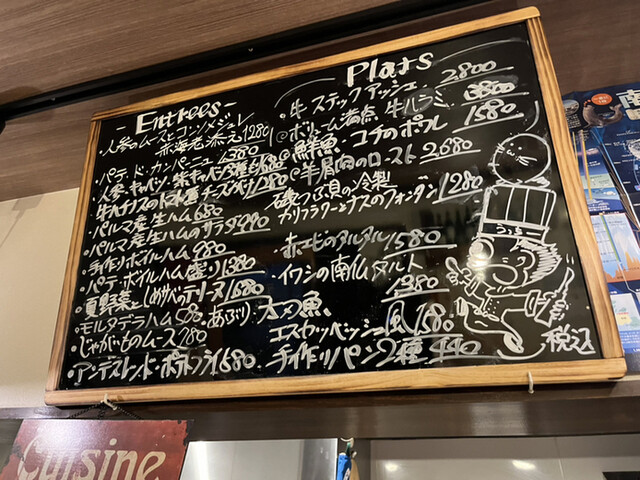 - Entrees -
・人参のムースとコンソメジュレ
赤海老添え1280
・パテ・ド・カンパーニュ 1380
・人参・キャベツ・紫キャベツ 680
牛ハチノスのトマト煮チーズ 1280
・パルマ産生ハム 680
・パルマ産生ハムのサラダ
・手作りボイルハム 980
・パテ・ボイルハム盛り 1380
・夏野菜としめサバのテリーヌ 1680
・モルタデラハム 580
・じゃがいものムース 780
・アンデスレッド・ポテトフライ 680
Plats
・牛 ステックアッシュ 2,800
・ボリューム満点 牛ハラミ 3800
鮮魚 コチのポワレ 1580
羊肩肉のロースト 2,680
磯つぶ貝の冷製
カリフラワーとナスのフォンダン 1280
・赤エビのタルタル 1580
・イワシの南仏タルト
1380
・あぶり太刀魚
エスカベッシュ風 1580
手作りパン2種 440
うっちー
税込
Cuisine